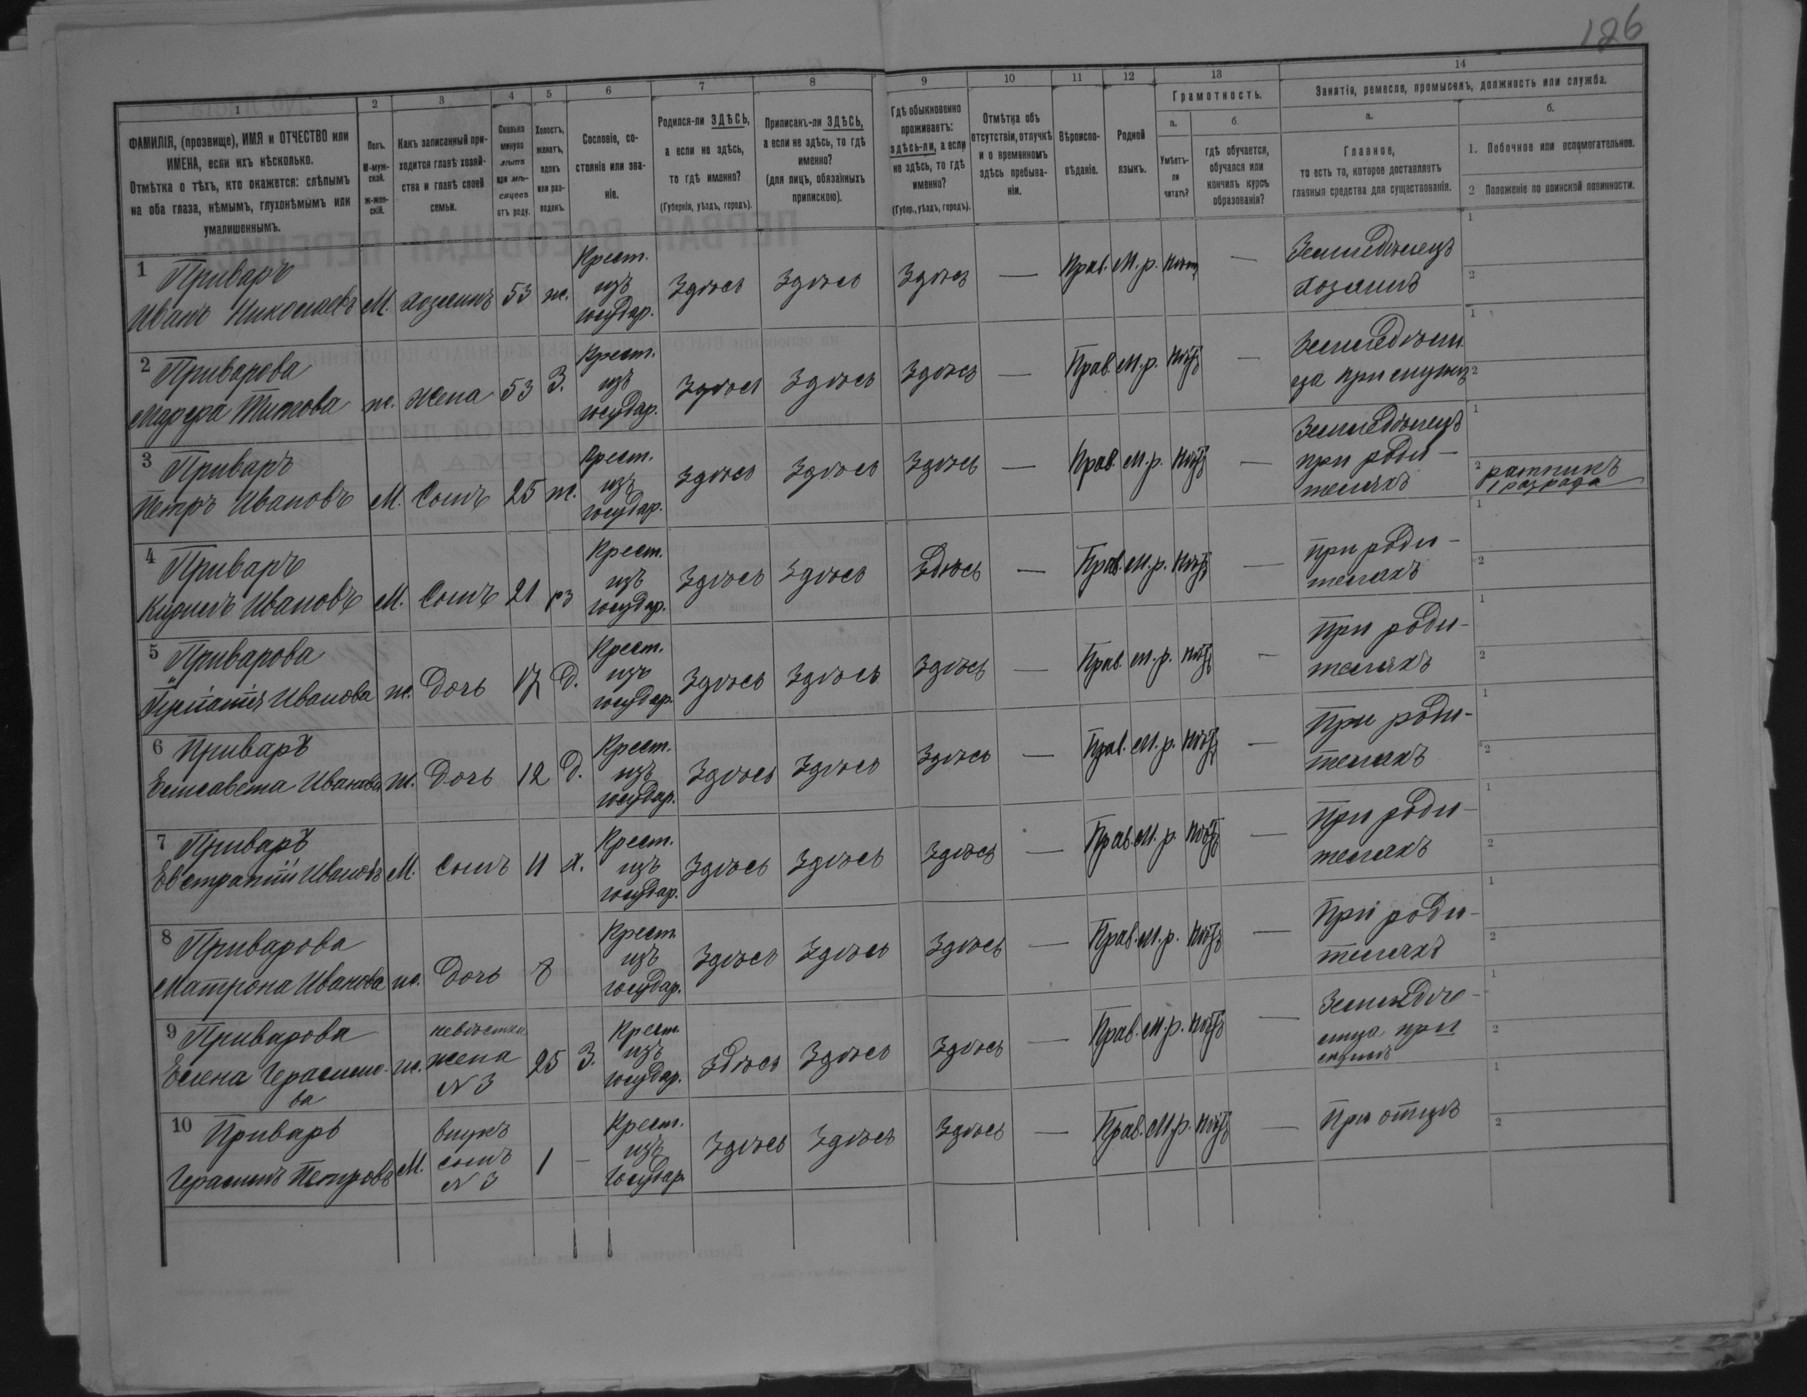 126
1
2
3
4
5
6
7
8
9
10
11
12
13
14
ФАМИЛІЯ, (прозвище), ИМЯ и ОТЧЕСТВО или
ИМЕНА, если ихъ нѣсколько.
Отмѣтка о тѣхъ, кто окажется: слѣпымъ
на оба глаза, нѣмымъ, глухонѣмымъ или
умалишеннымъ.
Полъ.
М-муж-
ской.
ж-жен-
скій.
Какъ записанный при-
ходится главѣ хозяй-
ства и главѣ своей
семьи.
Сколько
минуло
лѣтъ
или мѣ-
сяцевъ
отъ роду.
Холостъ,
женатъ,
вдовъ
или раз-
веденъ.
Сословіе, со-
стояніе или зва-
ніе.
Родился-ли ЗДѢСЬ,
а если не здѣсь,
то гдѣ именно?
(Губернія, уѣздъ, городъ).
Приписанъ-ли ЗДѢСЬ,
а если не здѣсь, то гдѣ
именно?
(для лицъ, обязанныхъ
припискою).
Гдѣ обыкновенно
проживаетъ:
здѣсь-ли, а если
не здѣсь, то гдѣ
именно?
(Губер., уѣздъ, городъ).
Отмѣтка объ
отсутствіи, отлучкѣ
и о временномъ
здѣсь пребыва-
ніи.
Вѣроиспо-
вѣданіе.
Родной
языкъ.
Грамотность.
а.
Умѣетъ-
ли
читать?
б.
гдѣ обучается,
обучался или
кончилъ курсъ
образованія?
Занятія, ремесло, промыселъ, должность или служба.
а.
Главное,
то есть то, которое доставляетъ
главныя средства для существованія.
б.
1. Побочное или вспомогательное.
2 Положеніе по воинской повинности.
1 Приваръ
Иванъ Николаевъ М. хозяинъ 53 ж. Крест. изъ государ. Здѣсь Здѣсь Здѣсь — Прав. М.р. нѣтъ — Земледѣлецъ хозяинъ 1 2
2 Приварова
Марфа Титова ж. жена 53 З. Крест. изъ государ. Здѣсь Здѣсь Здѣсь — Прав. М.р. нѣтъ — 1 2
3 Приваръ
Петръ Ивановъ М. Сынъ 25 ж. Крест. изъ государ. Здѣсь Здѣсь Здѣсь — Прав. М.р. нѣтъ — Земледѣлецъ при роди- теляхъ 1 2 ратникъ 1 разряда
4 Приваръ
Ивановъ М. Сынъ 21 Крест. изъ государ. Здѣсь Здѣсь Здѣсь — Прав. М.р. нѣтъ — при роди- теляхъ 1 2
5 Приварова
Иванова ж. Дочь 17 Д. Крест. изъ государ. Здѣсь Здѣсь Здѣсь — Прав. М.р. нѣтъ — При роди- теляхъ 1 2
6 Приваръ
Елисавета Иванова ж. Дочь 12 Д. Крест. изъ государ. Здѣсь Здѣсь Здѣсь — Прав. М.р. нѣтъ — При роди- теляхъ 1 2
7 Приваръ
Евстратій Ивановъ М. Сынъ 11 Х. Крест. изъ государ. Здѣсь Здѣсь Здѣсь — Прав. М.р. нѣтъ — При роди- теляхъ 1 2
8 Приварова
Матрона Иванова ж. Дочь 8 Крест. изъ государ. Здѣсь Здѣсь Здѣсь — Прав. М.р. нѣтъ — При роди- теляхъ 1 2
9 Приварова
Елена Герасимо- ва ж. невѣстка жена N 3 25 З. Крест. изъ государ. Здѣсь Здѣсь Здѣсь — Прав. М.р. нѣтъ — 1 2
10 Приваръ
Герасимъ Петровъ М. внукъ сынъ N 3 1 — Крест. изъ государ. Здѣсь Здѣсь Здѣсь — Прав. М.р. нѣтъ — При отцѣ 1 2